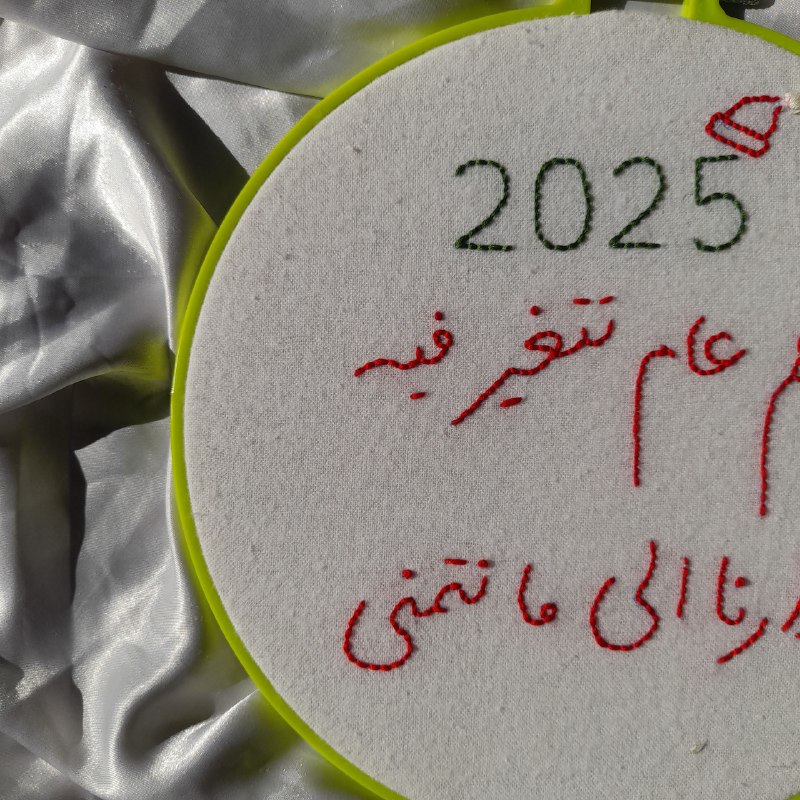 2025
عام تتغير فيه
الى ما نتمنى